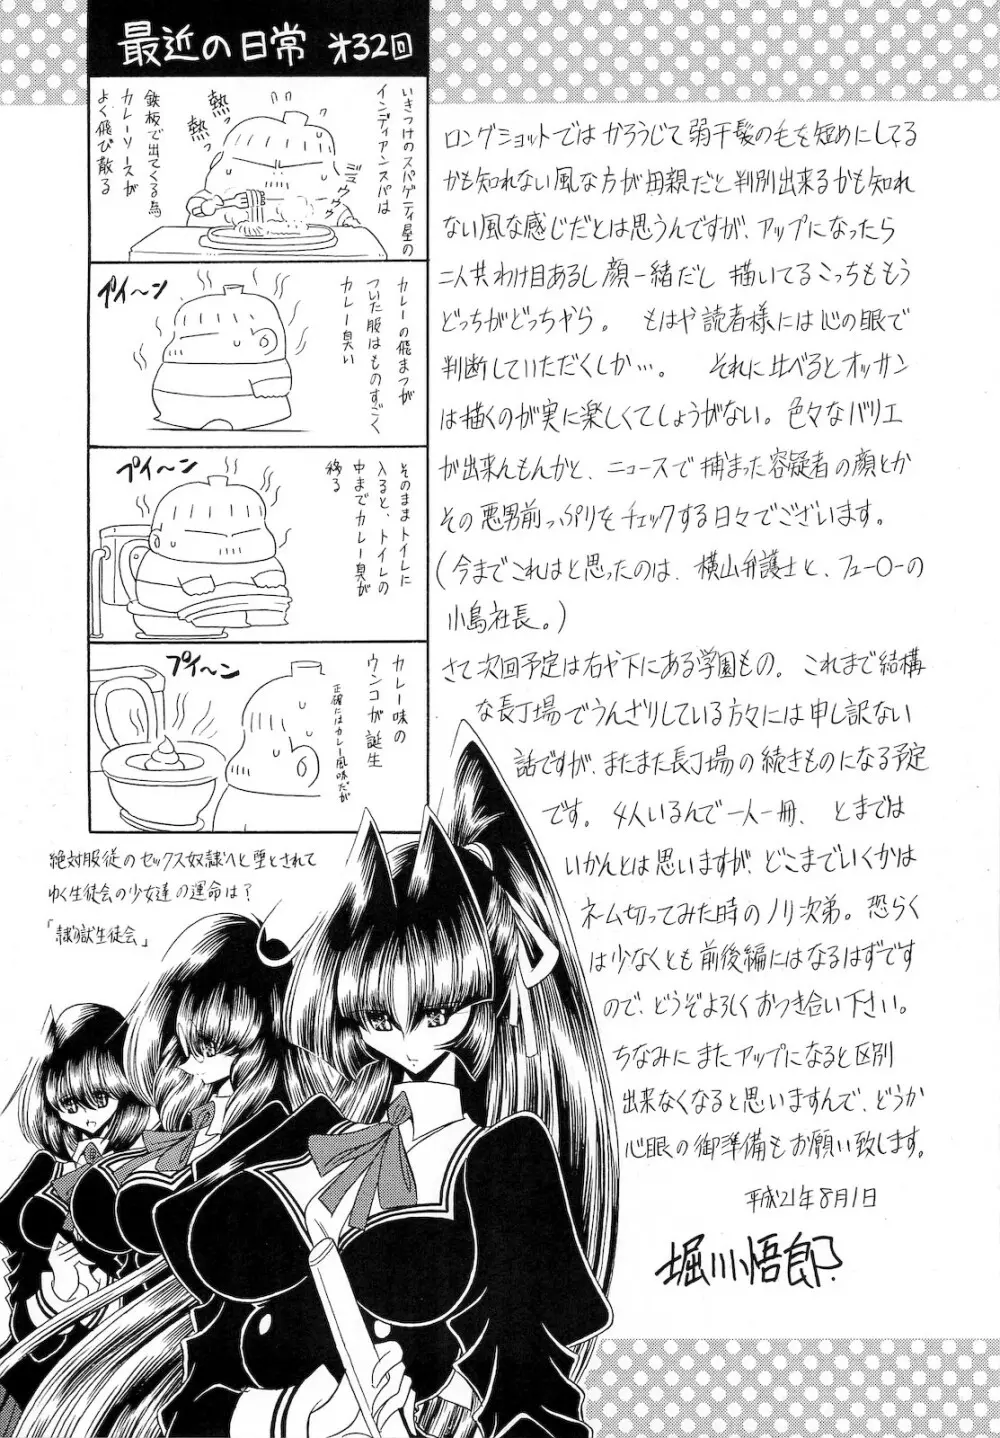 最近の日常 オ32回
いきつけのスパゲティ屋の
インディアンスパは
鉄板で出てくる為
カレーソースが
よく飛び散る
熱っ
熱っ
カレーの飛まつが
ついた服はものすごく
カレー臭い
プイ〜ン
そのままトイレに
入ると、トイレの
中までカレー臭が
移る
プイ〜ン
カレー味の
ウンコが誕生
正確にはカレー風味だが
プイ〜ン
ロングショットではかろうじて弱干髪の毛を短めにしてる
かも知れない風な方が母親だと判別出来るかも知れ
ない風な感じだとは思うんですが、アップになったら
二人共わけ目あるし顔一緒だし描いてるこっちももう
どっちがどっちやら。もはや読者様には心の眼で
判断していただくしか…。それに比べるとオッサン
は描くのが実に楽しくてしょうがない。色々なバリエ
が出来んもんかと、ニュースで捕まった容疑者の顔とか
その悪男前っぷりをチェックする日々でございます。
(今までこれはと思ったのは、横山弁護士と、フュー〇ーの
小島社長。)
さて次回予定は右や下にある学園もの。これまで結構
な長丁場でうんざりしている方々には申し訳ない
話ですが、またまた長丁場の続きものになる予定
です。4人いるんで一人一冊、とまでは
いかんとは思いますが、どこまでいくかは
ネーム切ってみた時のノリ次弟。恐らく
は少なくとも前後編にはなるはずです
ので、どうぞよろしくおつき合い下さい。
ちなみにまたアップになると区別
出来なくなると思いますんで、どうか
心眼の御準備もお願い致します。
平成21年8月1日
堀川悟郎
絶対服従のセックス奴隷へと堕とされて
ゆく生徒会の少女達の運命は?
「隷獄生徒会」